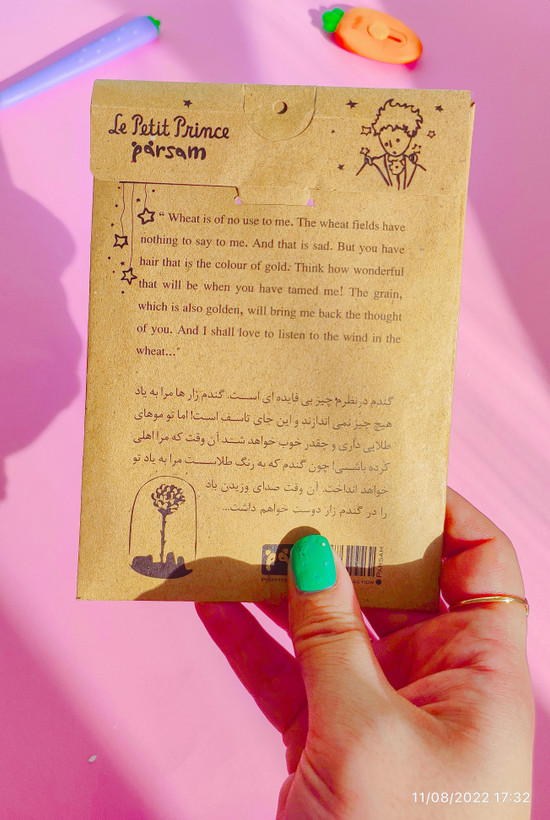 Le Petit Prince
pârsam
“ Wheat is of no use to me. The wheat fields have
nothing to say to me. And that is sad. But you have
hair that is the colour of gold. Think how wonderful
that will be when you have tamed me! The grain,
which is also golden, will bring me back the thought
of you. And I shall love to listen to the wind in the
wheat..."
گندم درنظرم چیز بی فایده ای است. گندم زار ها مرا به یاد
هیچ چیز نمی اندازند و این جای تاسف است! اما تو موهای
طلایی داری و چقدر خوب خواهد شد آن وقت که مرا اهلی
کرده باشی! چون گندم که به رنگ طلاست مرا به یاد تو
خواهد انداخت. آن وقت صدای وزیدن باد
را در گندم زار دوست خواهم داشت...
PÂRSAM
11/08/2022 17:32